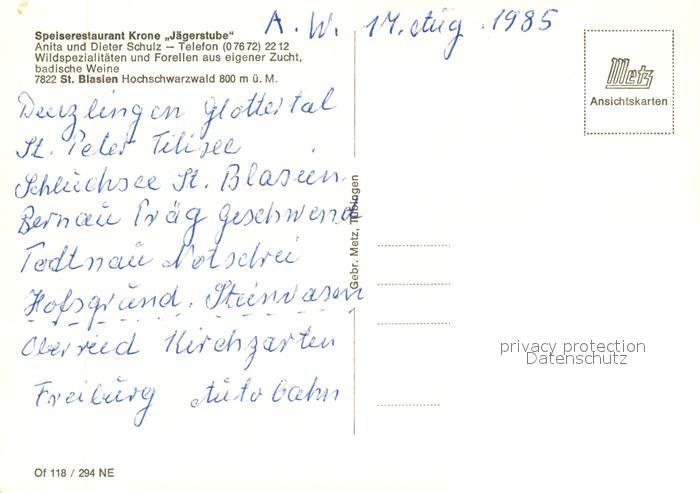 A. W. 17. Aug. 1985
Speiserestaurant Krone „Jägerstube"
Anita und Dieter Schulz – Telefon (0 76 72) 22 12
Wildspezialitäten und Forellen aus eigener Zucht,
badische Weine
7822 St. Blasien Hochschwarzwald 800 m ü. M.
Metz
Ansichtskarten
Denzlingen Glottertal
St. Peter Titisee
Schluchsee St. Blasien
Bernau Präg Geschwend
Todtnau Notschrei
Hofsgrund. Steinwasen
Oberried Kirchzarten
Freiburg Autobahn
Gebr. Metz, Tübingen
privacy protection
Datenschutz
Of 118 / 294 NE